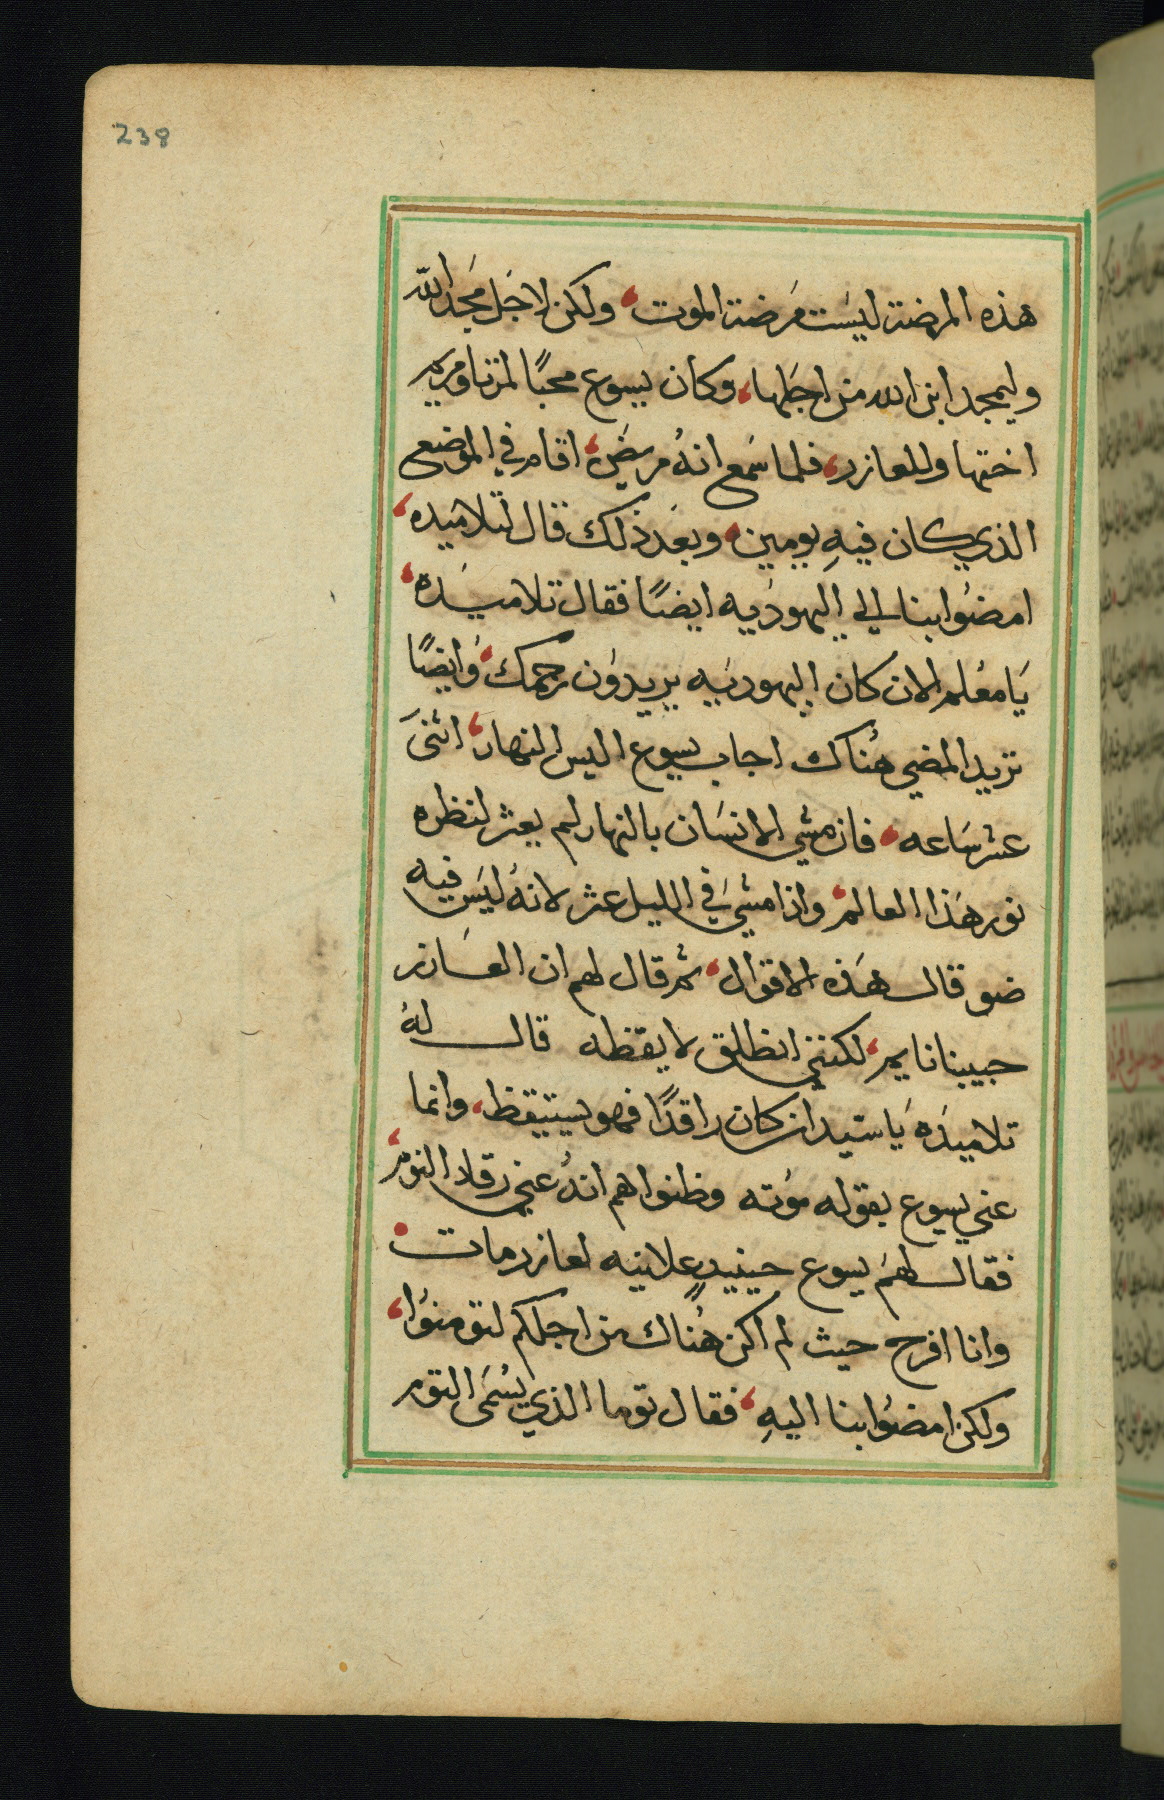 238
هذه المرضة ليست مرضة الموت، ولكن لاجل مجد الله
وليمجد ابن الله من اجلها، وكان يسوع محبًا لمرتا ومريم
اختها وللعازر، فلما سمع انهُ مريض، اقام في الموضع
الذي كان فيهِ يومين، وبعد ذلك قال لتلاميده،
امضوا بنا الي اليهوديه ايضًا فقال تلاميذه،
يا معلم الان كان اليهوديه يريدون رجمك، وايضًا
تريد المضي هُناك اجاب يسوع اليس النهار، اثنى
عشر ساعه، فان مشي الانسان بالنهار لم يعثر لنظره
نور هذا العالم، واذا مشي في الليل عثر لانهُ ليس فيه
ضو قال هذه الاقوال، ثم قال لهم ان العازر
حبيبنا نايم، لكنني انطلق لايقظه قال لهُ
تلاميذه يا سيد ان كان راقدًا فهو يستيقظ، وانما
عني يسوع بقوله موته وظنوا هم انهُ عني رقاد النوم،
فقال لهم يسوع حينيدٍ علانيه لعازر مات،
وانا افرح حيث لم اكن هُناك من اجلكم لتومنوا،
ولكن امضوا بنا اليهِ، فقال توما الذي يسمى التوم